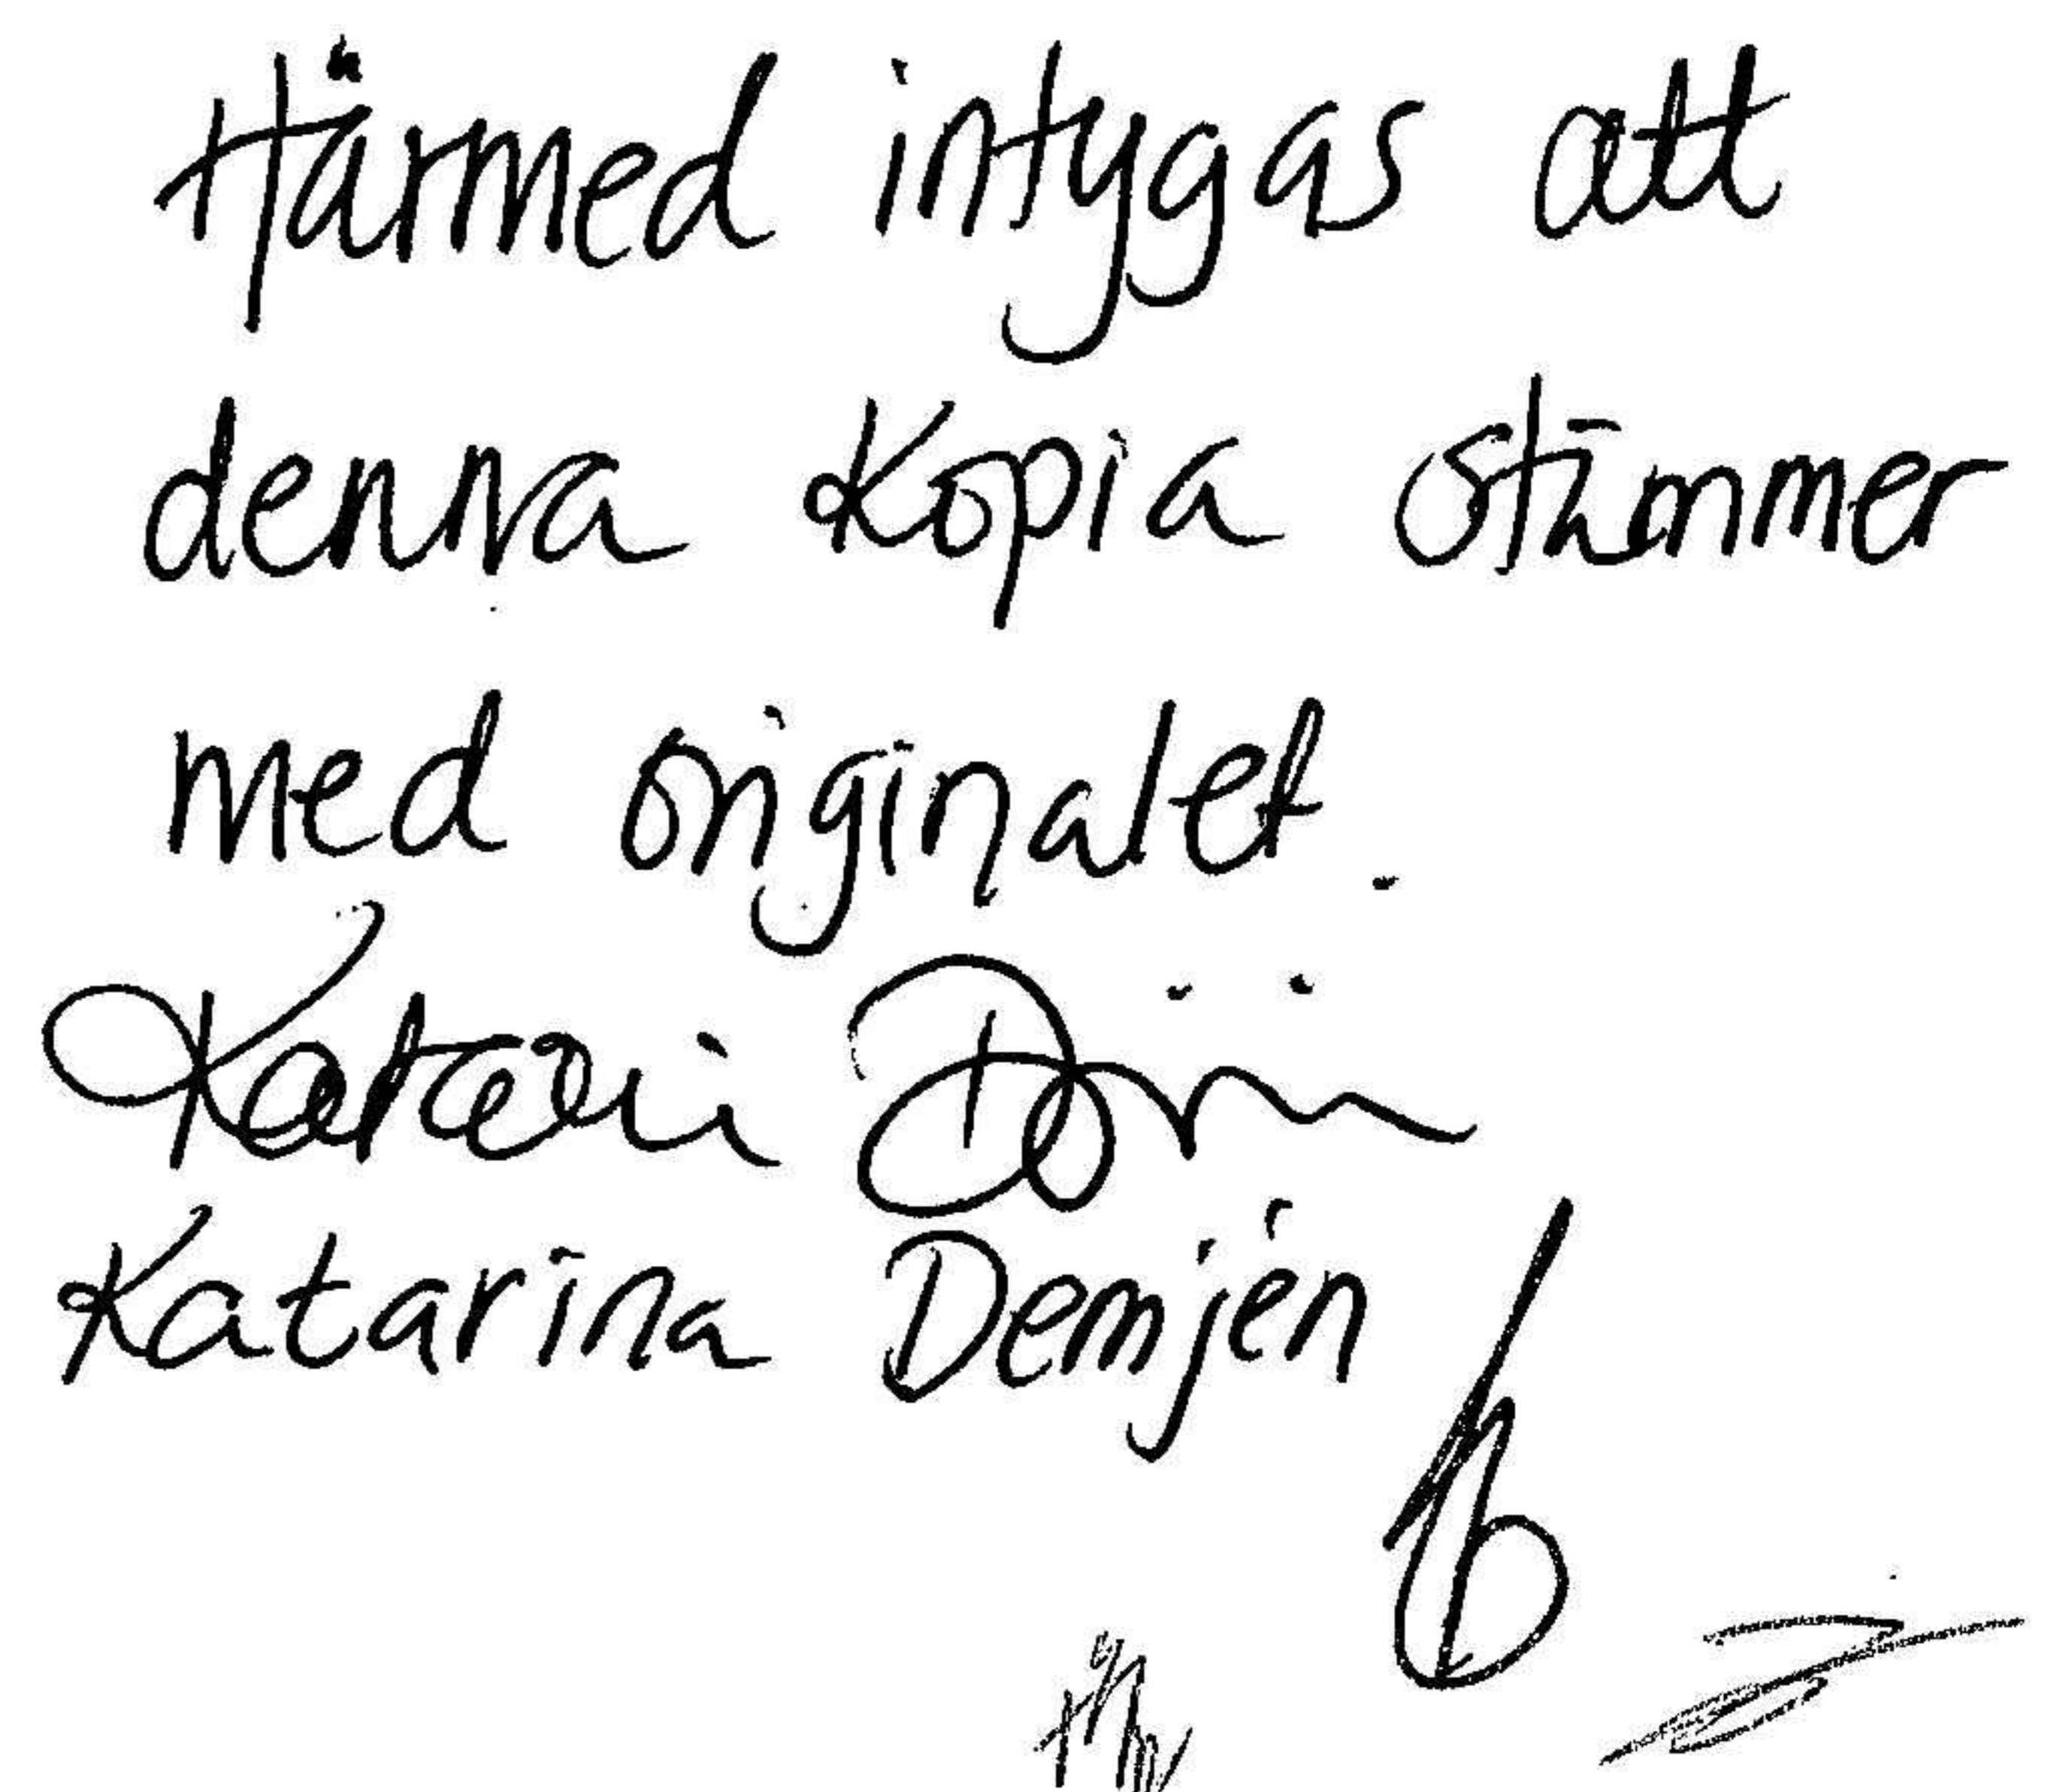 Härmed intygas att
denna kopia stämmer
med originalet.
Katarina Demjén